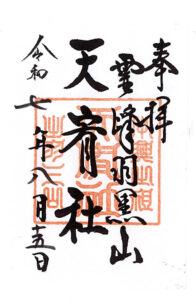 奉拝
霊峰羽黒山
天宥社
令和七年八月十五日